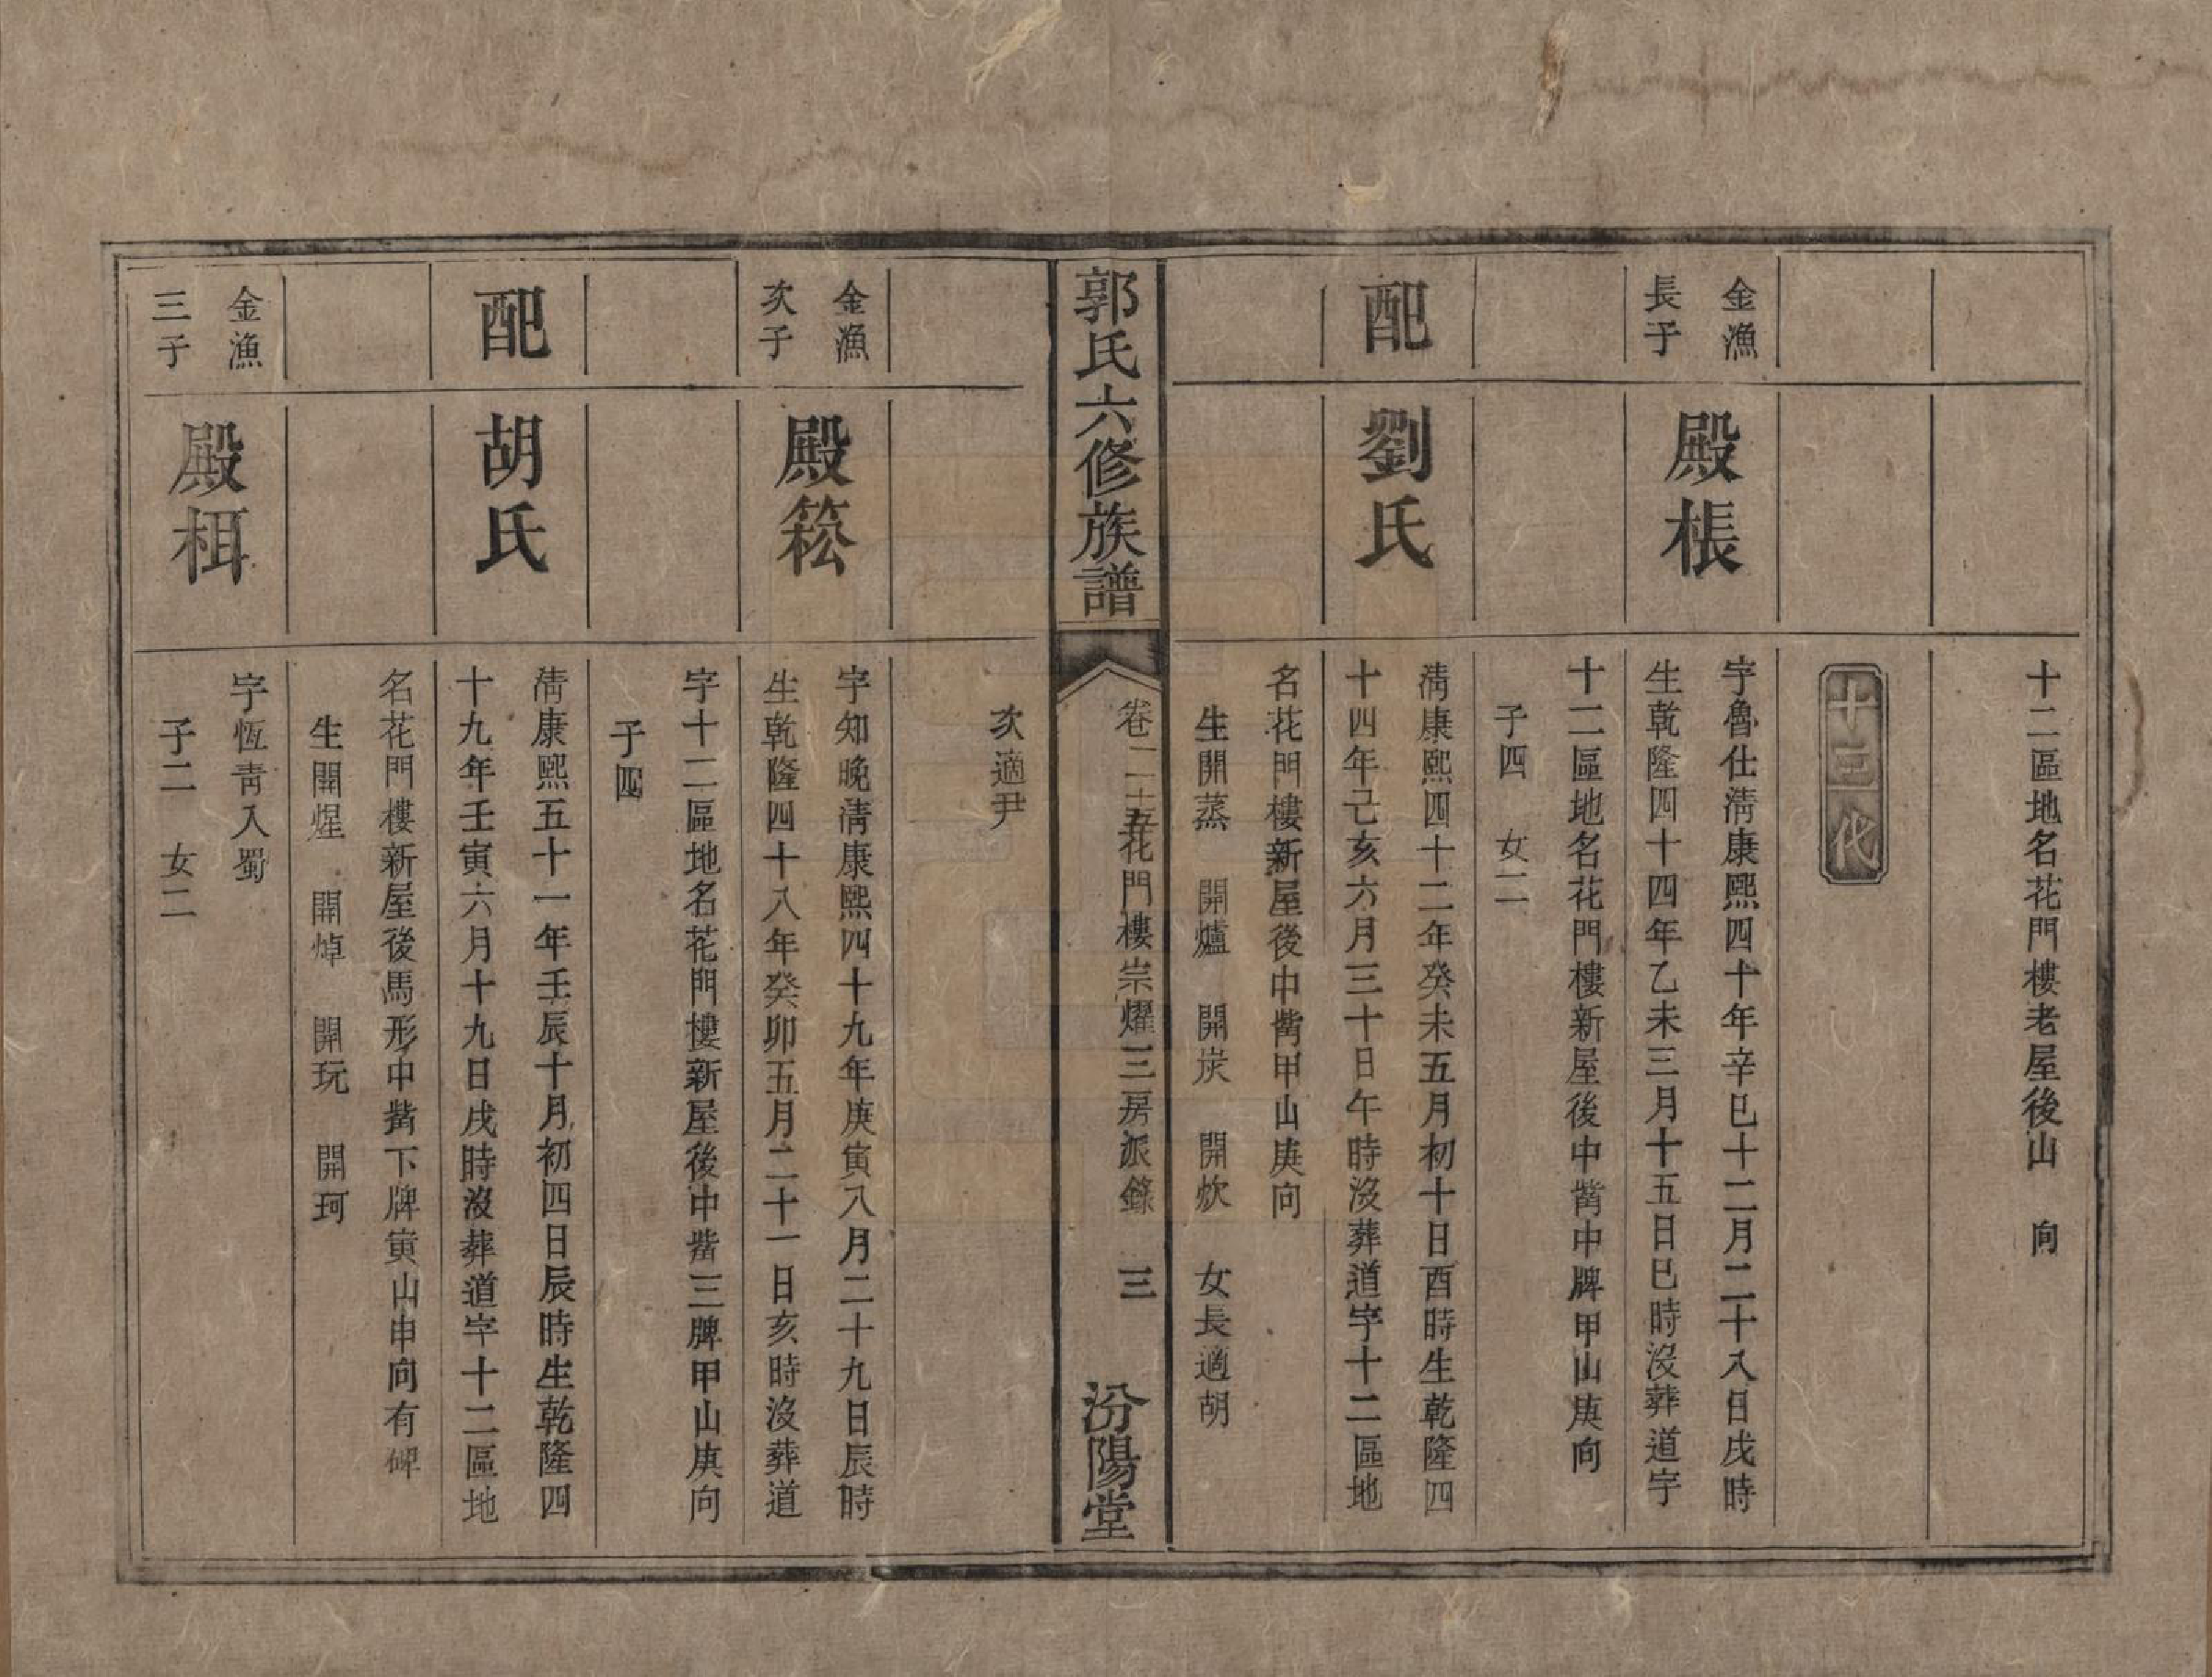 十二區地名花門樓老屋後山　向
十三代
金漁
長子
殿棖
字魯仕淸康熙四十年辛巳十二月二十八日戌時
生乾隆四十四年乙未三月十五日巳時沒葬道字
十二區地名花門樓新屋後中嘴中牌甲山庚向
子四　女二
配
劉氏
淸康熙四十二年癸未五月初十日酉時生乾隆四
十四年己亥六月三十日午時沒葬道字十二區地
名花門樓新屋後中嘴甲山庚向
生開蒸　開爐　開炭　開炊　女長適胡
郭氏六修族譜
卷二十五花門樓崇燿三房派錄　三
汾陽堂
次適尹
金漁
次子
殿簐
字知晚淸康熙四十九年庚寅八月二十九日辰時
生乾隆四十八年癸卯五月二十一日亥時沒葬道
字十二區地名花門樓新屋後中嘴三牌甲山庚向
子四
配
胡氏
淸康熙五十一年壬辰十月初四日辰時生乾隆四
十九年壬寅六月十九日戌時沒葬道字十二區地
名花門樓新屋後馬形中嘴下牌寅山申向有碑
生開煋　開焯　開玩　開珂
金漁
三子
殿栮
字恆靑入蜀
子二　女二